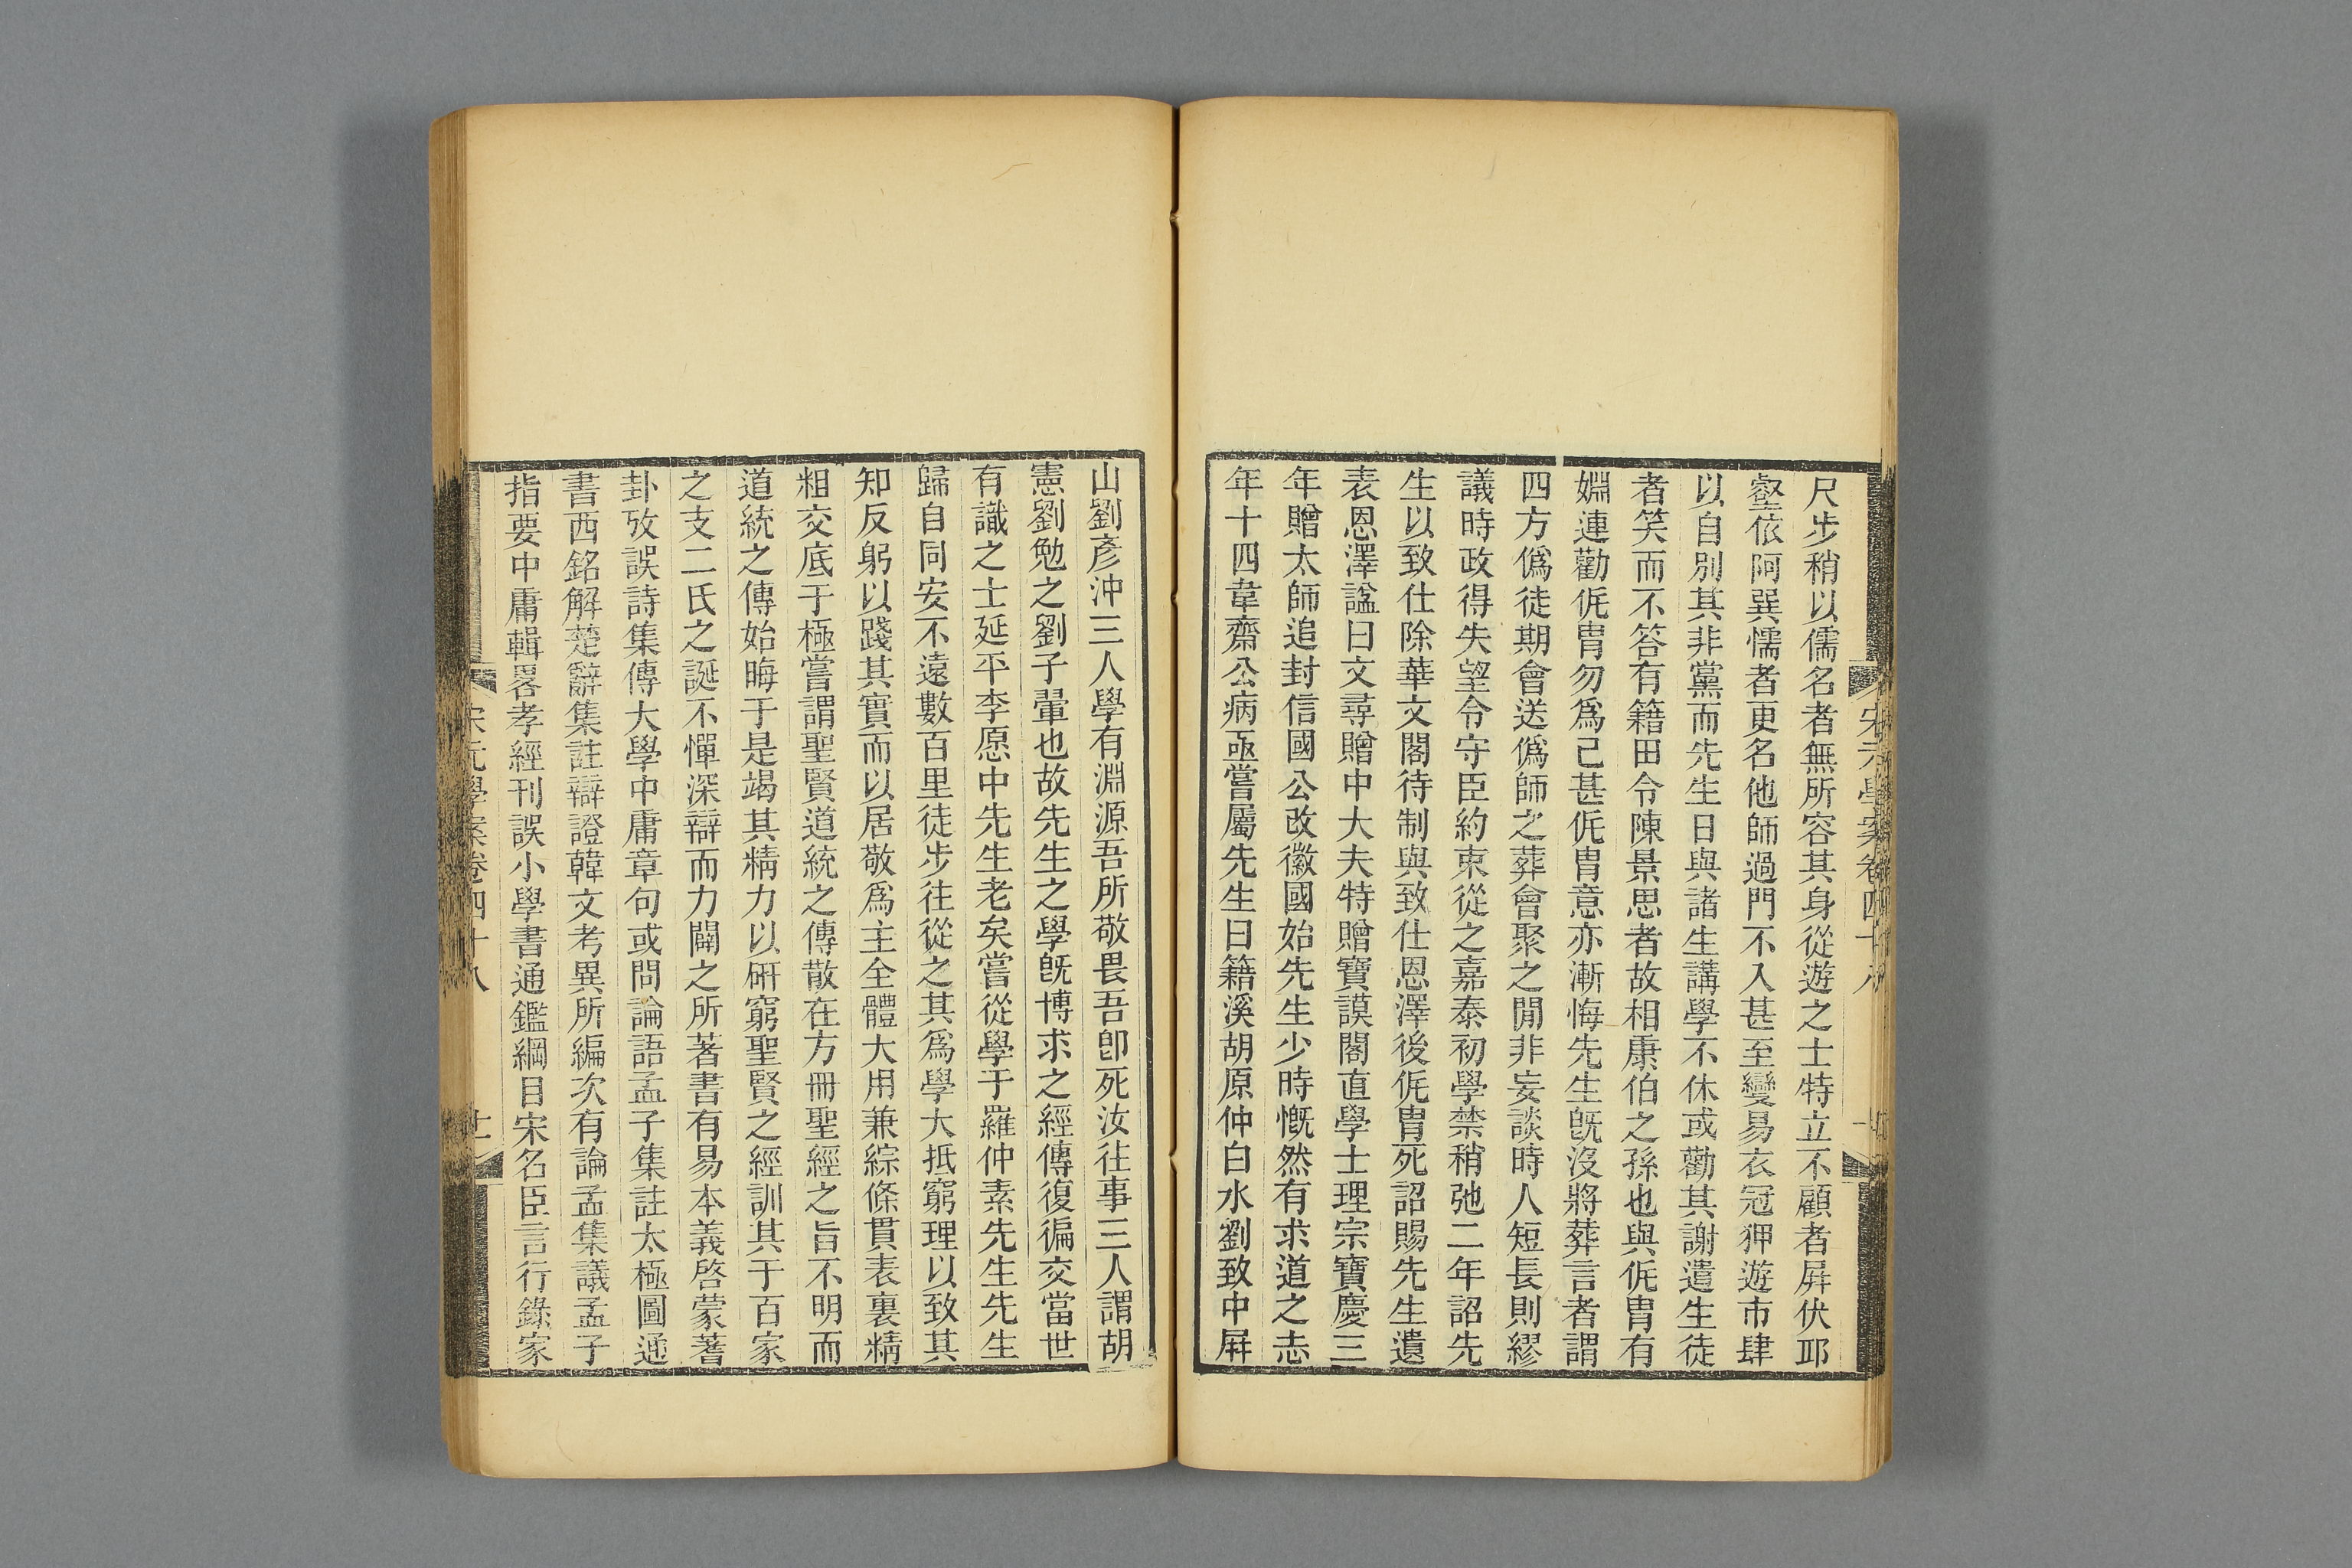 尺步稍以儒名者無所容其身從遊之士特立不顧者屛伏邱
壑依阿巽懦者更名他師過門不入甚至變易衣冠狎遊市肆
以自別其非黨而先生日與諸生講學不休或勸其謝遣生徒
者笑而不答有籍田令陳景思者故相康伯之孫也與侂冑有
婣連勸侂冑勿爲已甚侂冑意亦漸悔先生旣沒將葬言者謂
四方僞徒期會送僞師之葬會聚之閒非妄談時人短長則繆
議時政得失望令守臣約束從之嘉泰初學禁稍弛二年詔先
生以致仕除華文閣待制與致仕恩澤後侂冑死詔賜先生遺
表恩澤諡曰文尋贈中大夫特贈寶謨閣直學士理宗寶慶三
年贈太師追封信國公改徽國始先生少時慨然有求道之志
年十四韋齋公病亟嘗屬先生曰籍溪胡原仲白水劉致中屛
山劉彥沖三人學有淵源吾所敬畏吾卽死汝往事三人謂胡
憲劉勉之劉子翬也故先生之學旣博求之經傳復徧交當世
有識之士延平李愿中先生老矣嘗從學于羅仲素先生先生
歸自同安不遠數百里徒步往從之其爲學大抵窮理以致其
知反躬以踐其實而以居敬爲主全體大用兼綜條貫表裏精
粗交底于極嘗謂聖賢道統之傳散在方冊聖經之旨不明而
道統之傳始晦于是竭其精力以硏窮聖賢之經訓其于百家
之支二氏之誕不憚深辯而力闢之所著書有易本義啓蒙蓍
卦攷誤詩集傳大學中庸章句或問論語孟子集註太極圖通
書西銘解楚辭集註辯證韓文考異所編次有論孟集議孟子
指要中庸輯畧孝經刊誤小學書通鑑綱目宋名臣言行錄家
宋元學案卷四十八